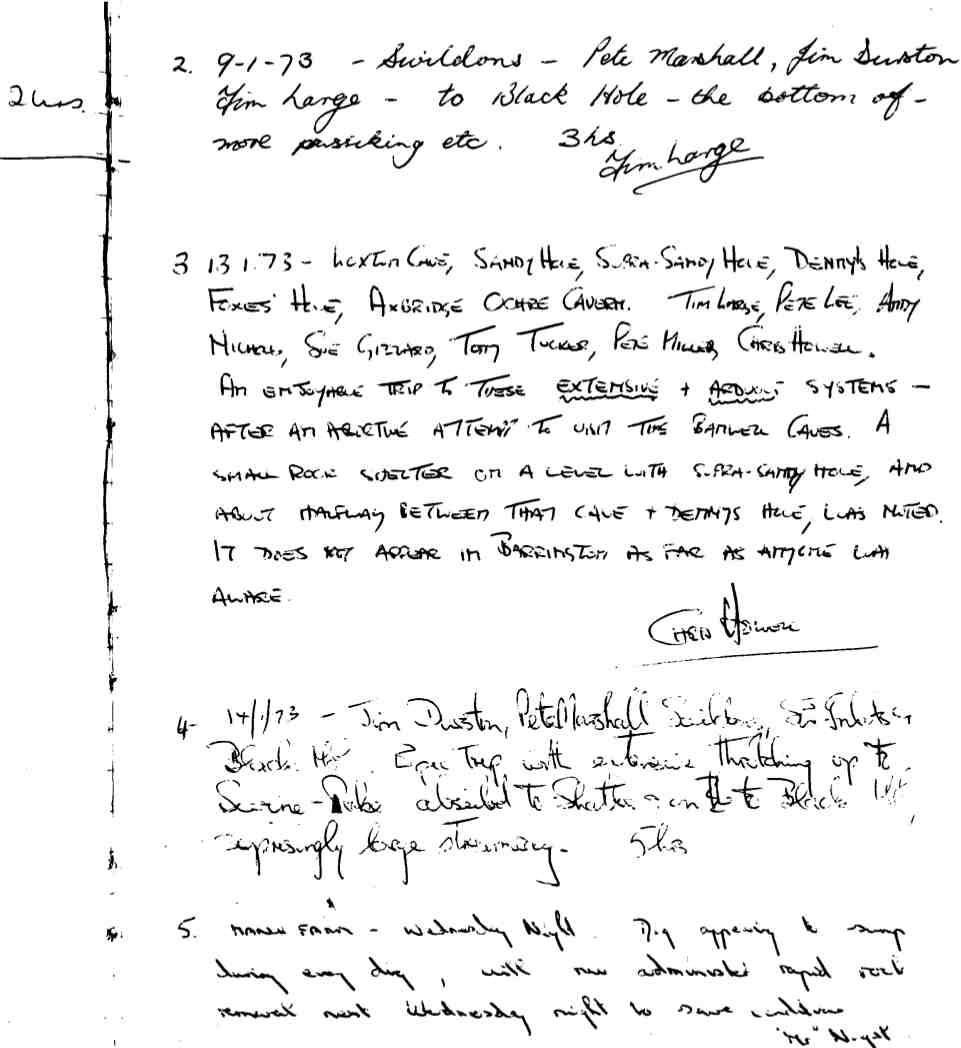 2 hrs.
2. 9-1-73 - Swildons - Pete Marshall, Jim Durston
Tim Large - to Black Hole - the bottom of -
more pussiking etc. 3 hs.
Tim Large
3 13.1.73 - Loxton Cave, Sandy Hole, Supra-Sandy Hole, Denny's Hole,
Foxes' Hole, Axbridge Ochre Cavern. Tim Large, Pete Lee, Andy
Nichols, Sue Gizzard, Tom Tucker, Pete Miller, Chris Howell.
An enjoyable trip to these extensive + arduous systems -
after an abortive attempt to visit the Banwell Caves. A
small rock shelter on a level with Supra-Sandy Hole, and
about halfway between that cave + Dennys Hole, was noted.
It does not appear in Barrington as far as anyone was
aware.
Chris Howell
4- 14/1/73 - Jim Durston, Pete Marshall Swildons,
Black Hole. Epic Trip with extensive thrutching up to
abseiled to Shatter on to Black Hole
surprisingly large streamway. 5 hrs
5. Manor Farm - Wednesday Night. Dig appearing to sump
during every dig, will now administer rapid rock
removal next Wednesday night to save
"Mr" N